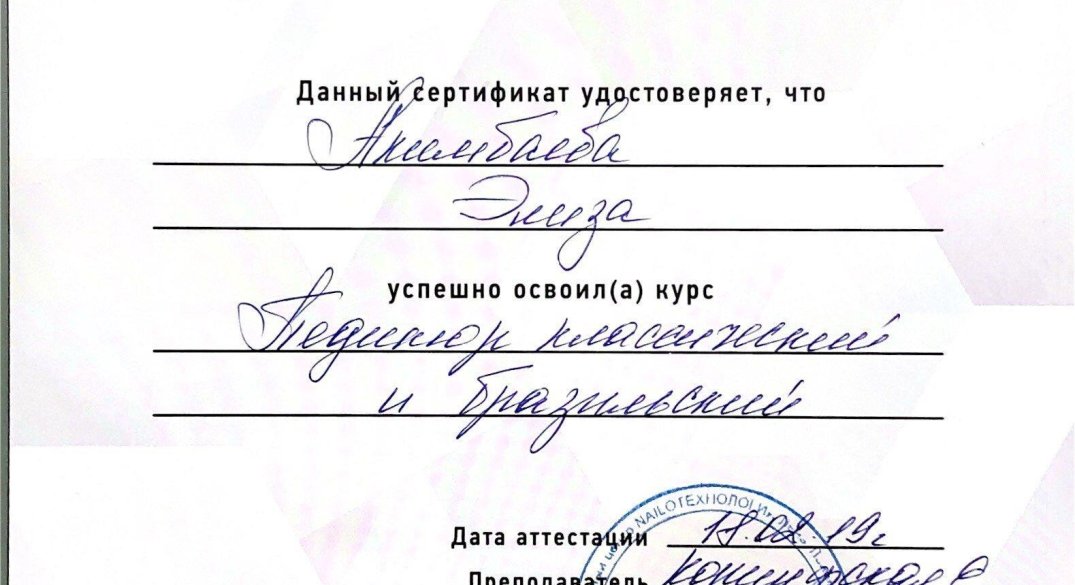 Данный сертификат удостоверяет, что
Акимбаева
Элиза
успешно освоил(а) курс
Педикюр классический
и бразильский
NAILОТЕХНОЛОГИЯ
Дата аттестации 18.02.19г
Преподаватель